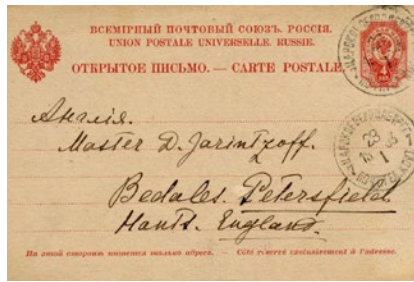 ВСЕМІРНЫЙ ПОЧТОВЫЙ СОЮЗЪ. РОССІЯ.
UNION POSTALE UNIVERSELLE. RUSSIE.
ОТКРЫТОЕ ПИСЬМО. — CARTE POSTALE
Англія.
Master D. Jarintzoff.
Bedales. Petersfield.
Hants. England.
На этой сторонѣ пишется только адресъ. — Côté réservé exclusivement à l'adresse.